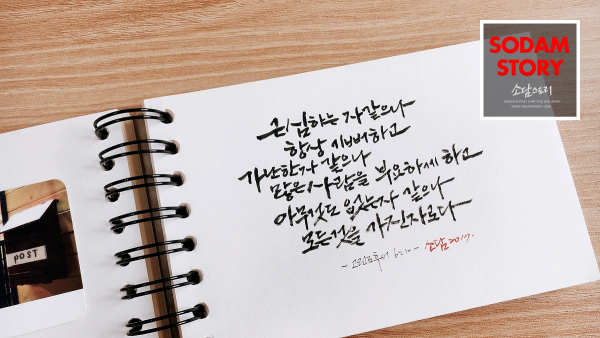 SODAM
STORY
소담스토리
근심하는 자같으나
항상 기뻐하고
가난한자 같으나
많은 사람을 부요하게 하고
아무것도 없는자 같으나
모든것을 가진자로다
- 고린도후서 6:10 - 소담 2017.
post